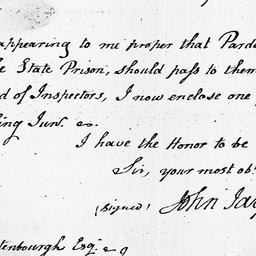 appearing to me proper that Pardo
e State Prison, should pass to them
d of Inspectors, I now enclose one
ing Junr. &.
I have the Honor to be
Sir, your most obt.
(signed) John Jay
tenbourgh Esqr.